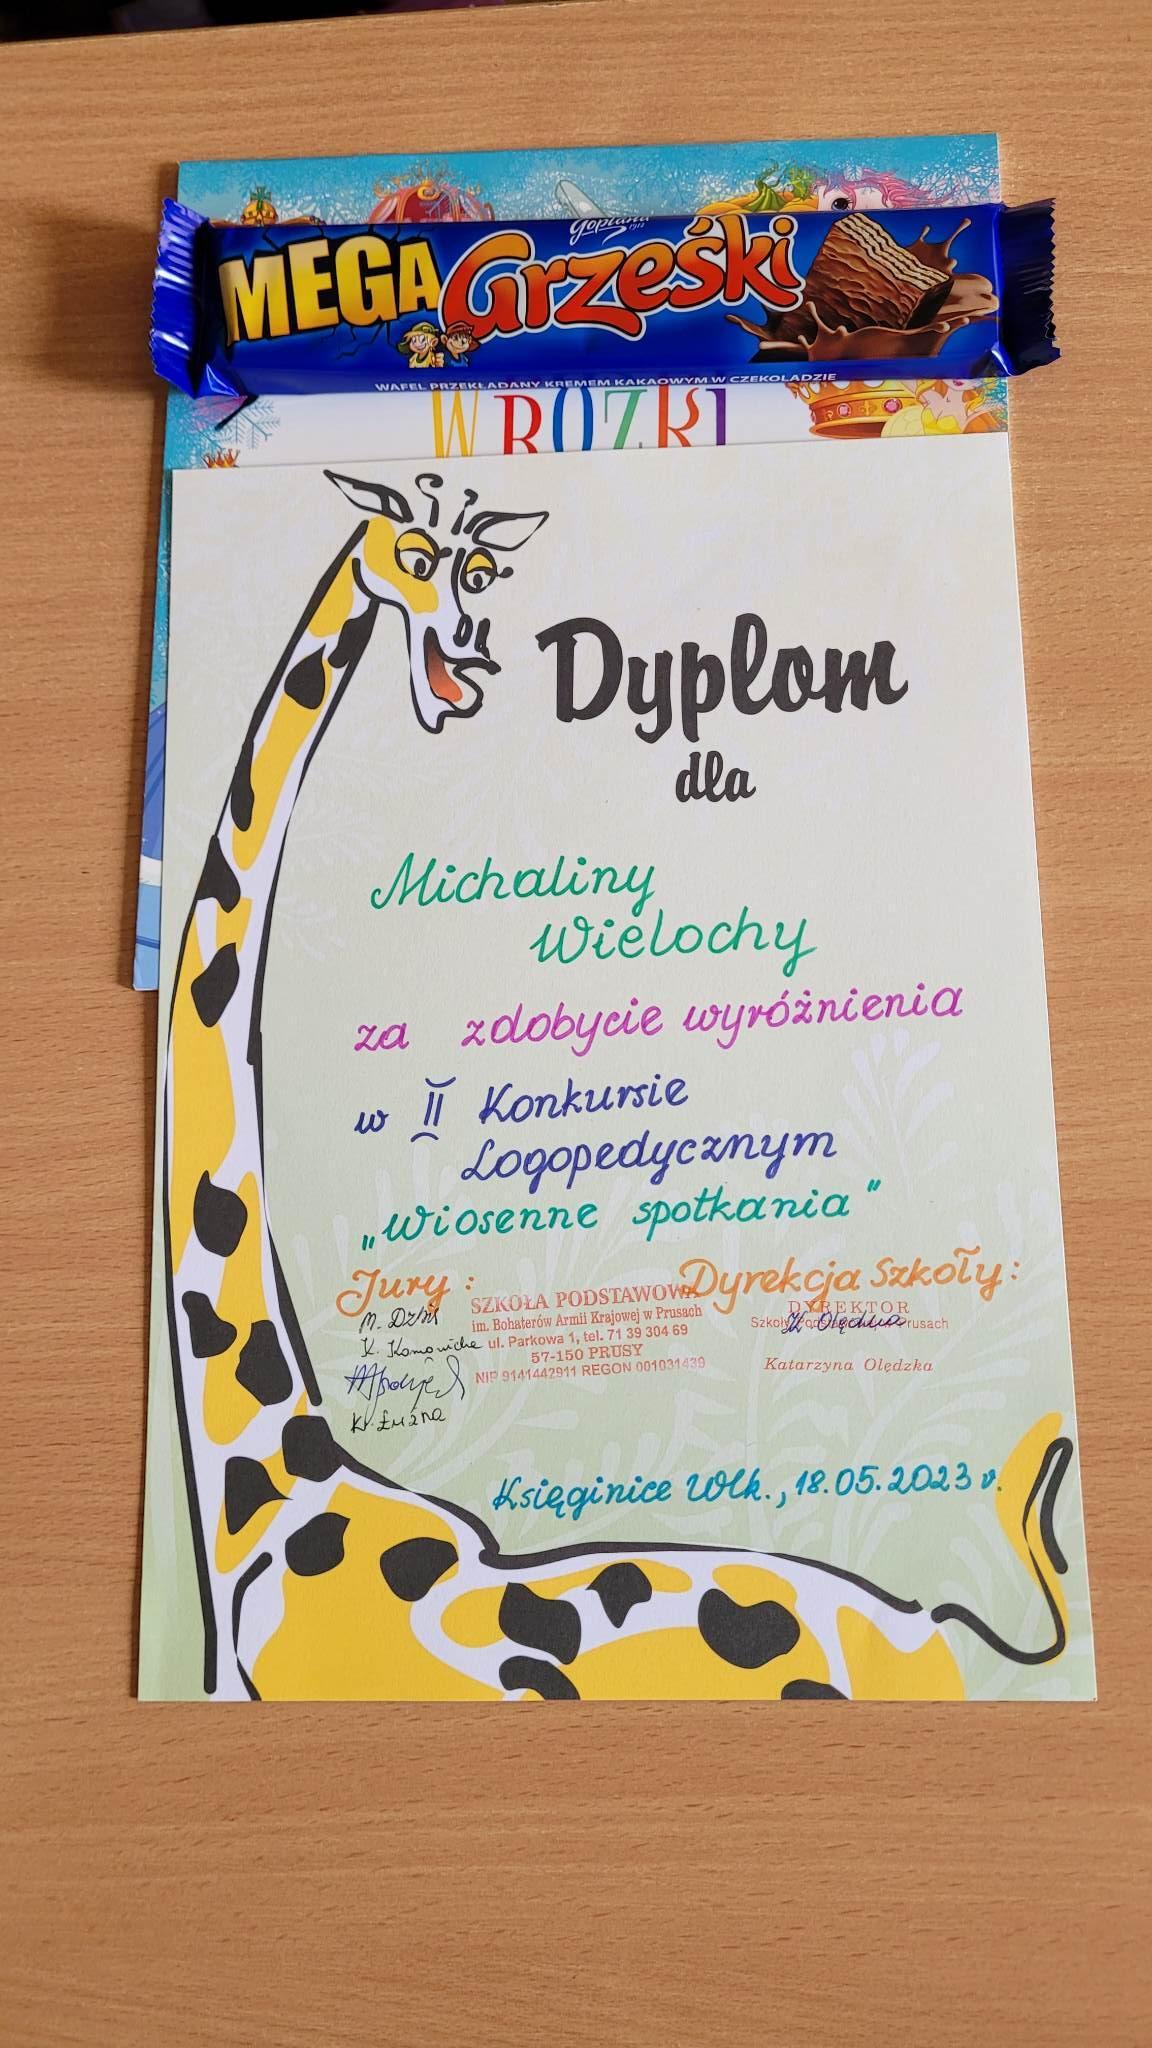 Goplana
1912
MEGA Grześki
WAFEL PRZEKŁADANY KREMEM KAKAOWYM W CZEKOLADZIE
WRÓŻKI
Dyplom
dla
Michaliny
Wielochy
za zdobycie wyróżnienia
w II Konkursie
Logopedycznym
„Wiosenne spotkania"
Jury: Dyrekcja Szkoły:
SZKOŁA PODSTAWOWA
im. Bohaterów Armii Krajowej w Prusach
ul. Parkowa 1, tel. 71 39 304 69
57-150 PRUSY
NIP 9141442911 REGON 001031439
K. Łuźna
DYREKTOR
Katarzyna Olędzka
Księginice Wlk., 18.05.2023 r.